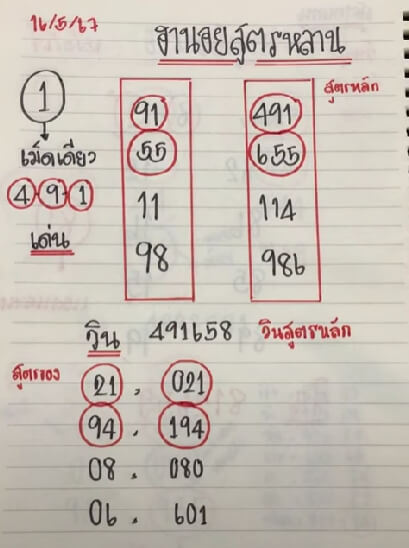 16/5/67
ฮานอยสูตรหลาน
สูตรหลัก
1
เม็ดเดียว
4 9 1
เด่น
91 491
55 655
11 114
98 986
วิน 491658 วินสูตรหลัก
สูตรรอง
21 . 021
94 . 194
08 . 080
06 . 601